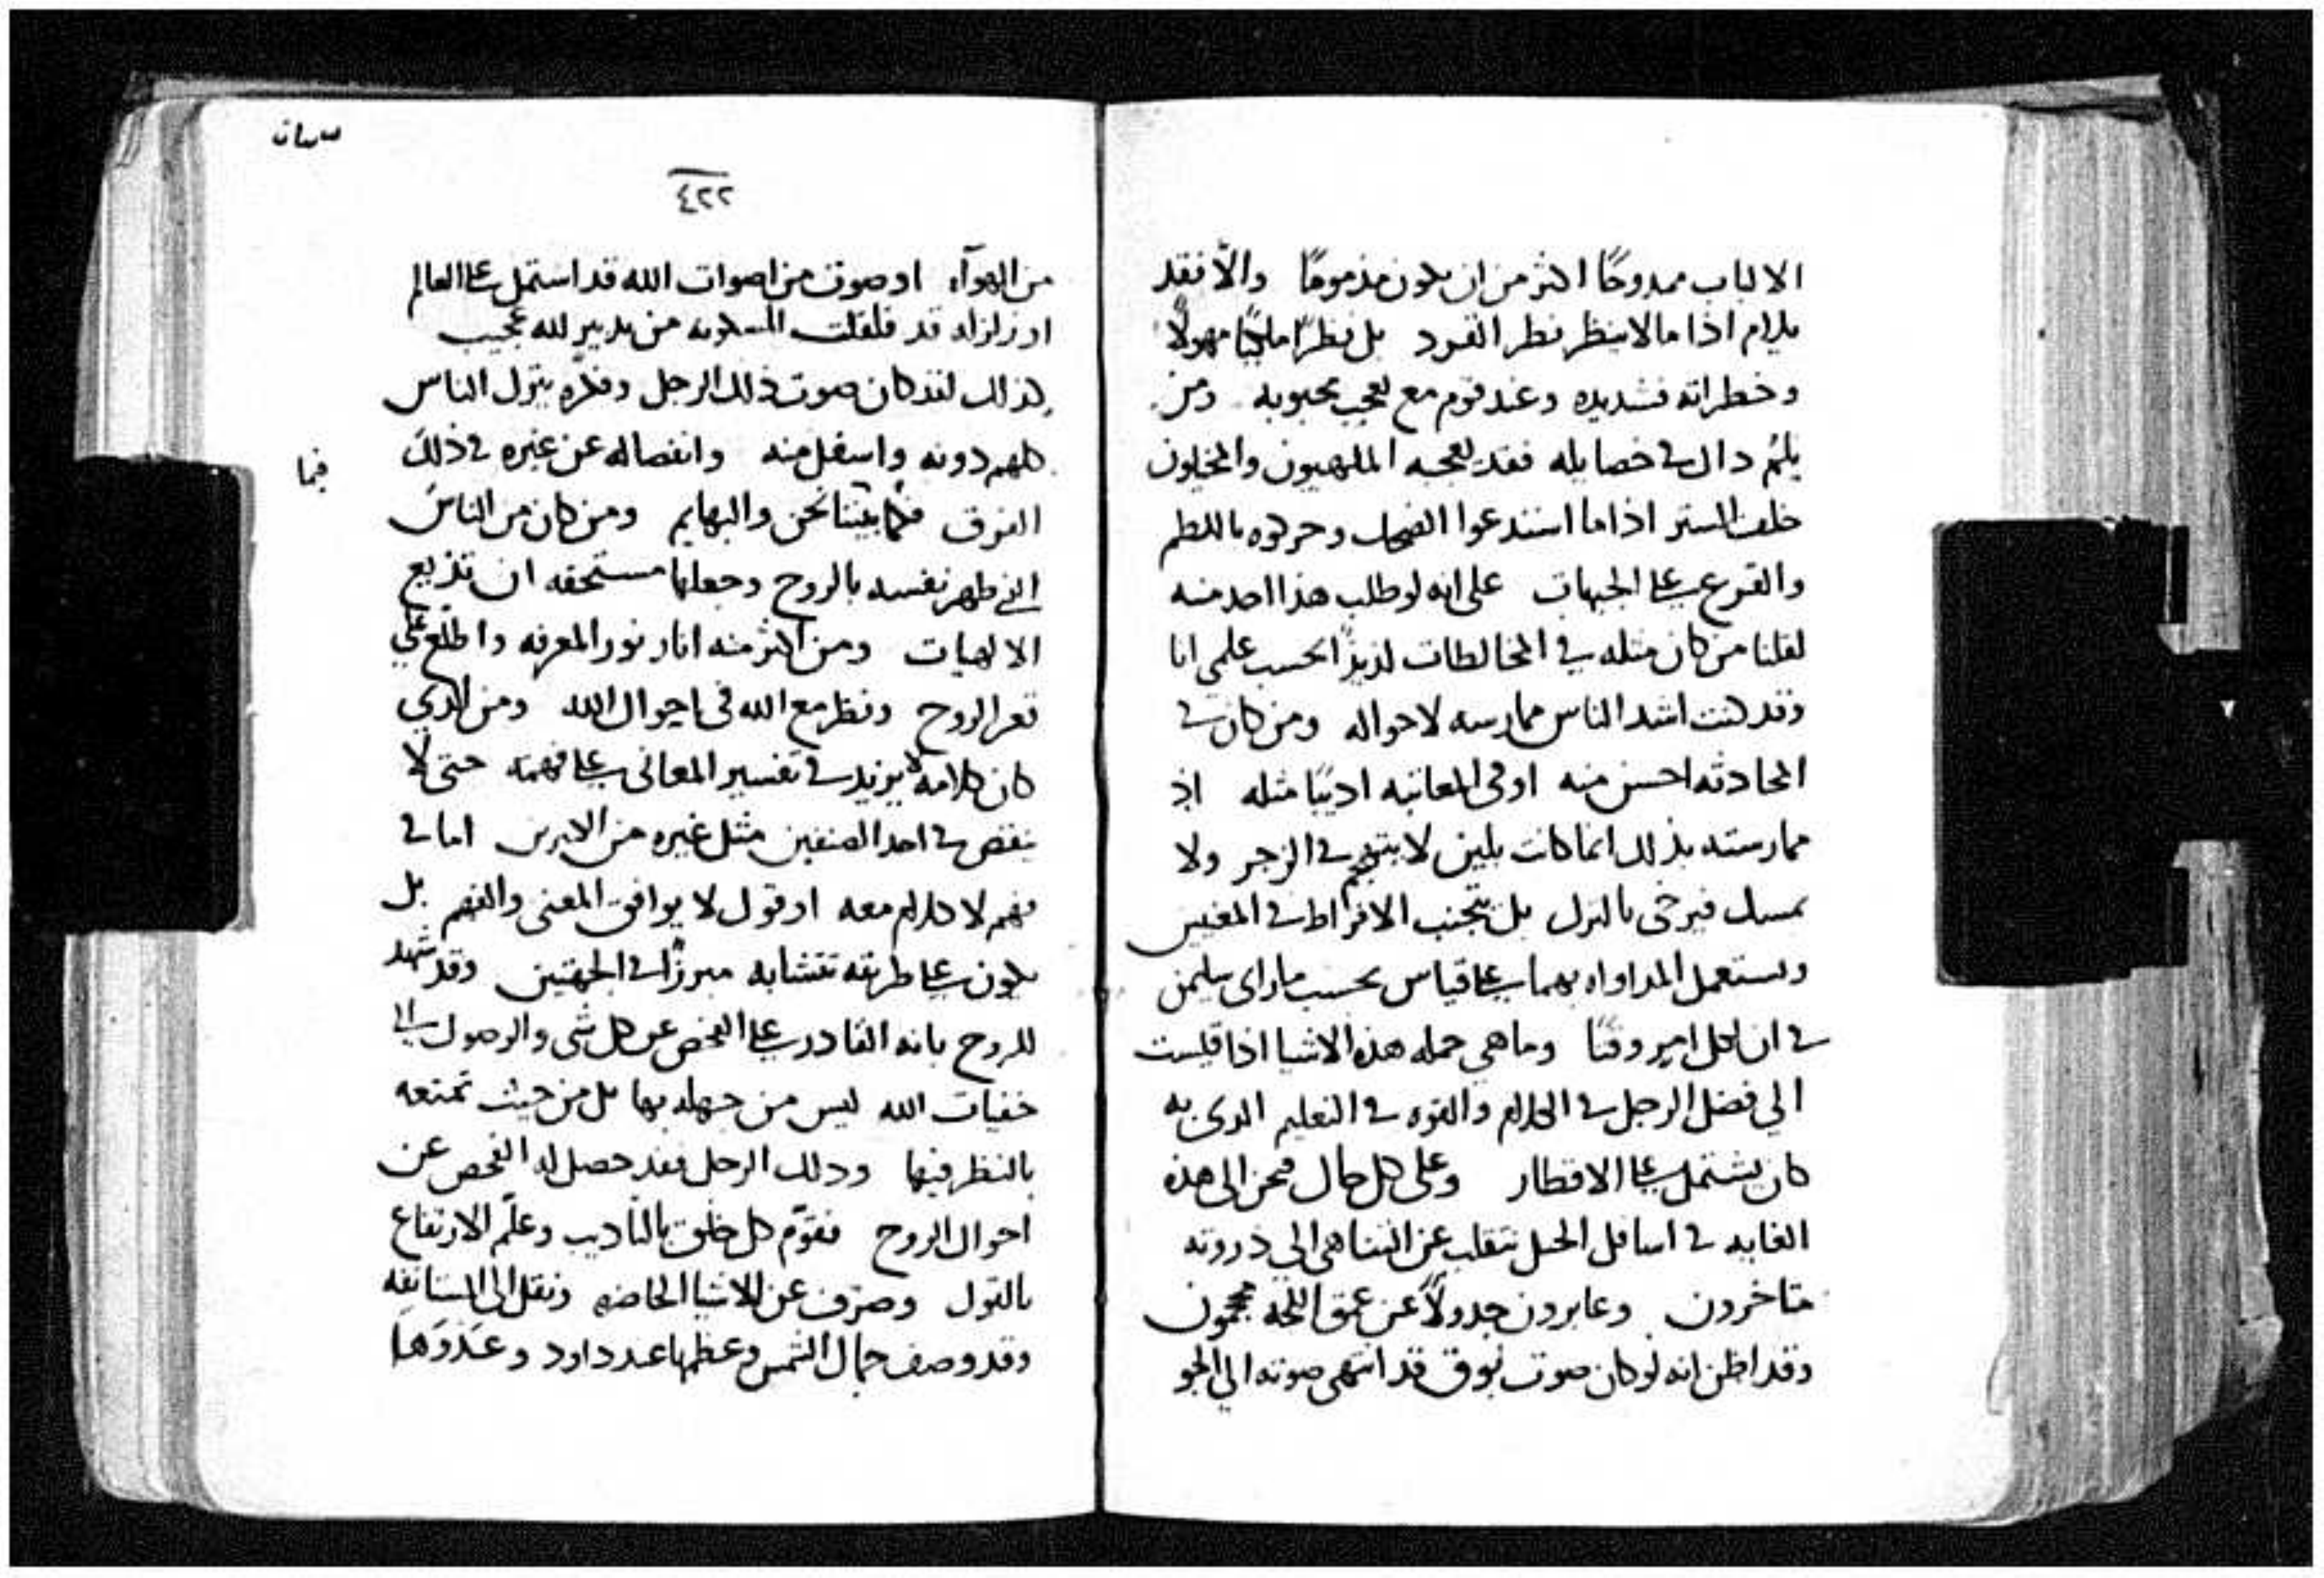 الالباب ممدوحًا اكثر من ان يكون مذمومًا والّا فقد
يكرم اذا ما لا ينظر نظر القرود بل نظرًا مهولًا
وخطراته فشديده وعند قوم مع تعجب محبوبه ومن
دال في خصايله فقد يعجبه الملهيون والمخايلون
خلف الستر اذا ما استدعوا الضحك وحركوه باللطم
والقرع على الجبهات على انه لو طلب هذا احد منه
لقلنا من كان مثله في المخالطات لذيذًا بحسب علمي انا
وقد كنت اشد الناس ممارسه لاحواله ومن كان في
المحادثه احسن منه او في المعاتبه اديبًا مثله اذ
ممارسته بذلك انما كانت بلين لا في الزجر ولا
بالنزل بل يتجنب الافراط في المعنيين
ويستعمل المداواه بهما على قياس بحسب ما راى سليمن
في ان لكل امر وقتًا وما هي جمله هذه الاشيا اذا قيست
الي فضل الرجل في الكلام والقوه في التعليم الدى به
كان يشتمل على الاقطار وعلى كل حال فنحن الى هذه
الغايه في اسافل الجبل نتقلب عن التناهى الى ذروته
متاخرون وعابرون جدولًا عن عمق اللجه محجمون
وقد اظن انه لو كان صوت بوق قد انتهى صوته الي الجو
٤٢٢
من الهوآء او صوت من اصوات الله قد استمل على العالم
او زلزله قد قلقلت المسكونه من تدبير لله عجيب
كذلك لقد كان صوت ذلك الرجل وفكره يترك الناس
كلهم دونه واسفل منه وانفصاله عن غيره في ذلك
فيما
الفرق فكما بيننا نحن والبهايم ومن كان من الناس
الذي طهر نفسه بالروح وجعلها مستحقه ان تذيع
الالهيات ومن اكثر منه انار نور المعرفه واطلع على
قعر الروح ونظر مع الله في احوال الله ومن الدي
كان كلامه لا يزيد في تفسير المعانى على فهمه حتى لا
ينقص في احد الصنفين مثل غيره من الاخرين اما في
فهم لا كلام معه او قول لا يوافق المعنى والفهم بل
يكون على طريقه تتشابه مبرزًا في الجهتين وقد شهد
للروح بانه القادر على الفحص عن كل شي والوصول الى
خفيات الله ليس من جهله بها بل من حيث تمتعه
بالنظر فيها ودلك الرجل فقد حصل له الفحص عن
احوال الروح فقوّم كل خلق بالتاديب وعلّم الارتفاع
بالقول وصرف عن الاشيا الحاضره ونقل الى المستانفه
وقد وصف جمال الشمس وعظمها عند داود وعَدْوَها